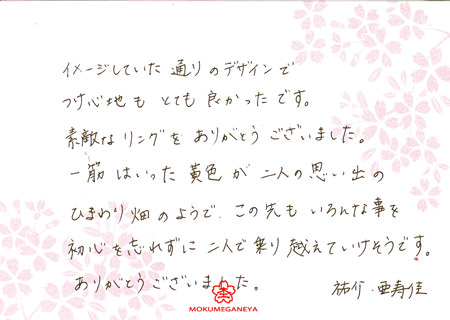 イメージしていた 通りのデザインで
つけ心地も とても 良かったです。
素敵な リングを ありがとう ございました。
一筋 はいった 黄色が 二人の思い出の
ひまわり畑のようで、この先も いろんな事を
初心を忘れずに 二人で乗り越えていけそうです。
ありがとうございました。
祐介・亜寿佳
MOKUMEGANEYA